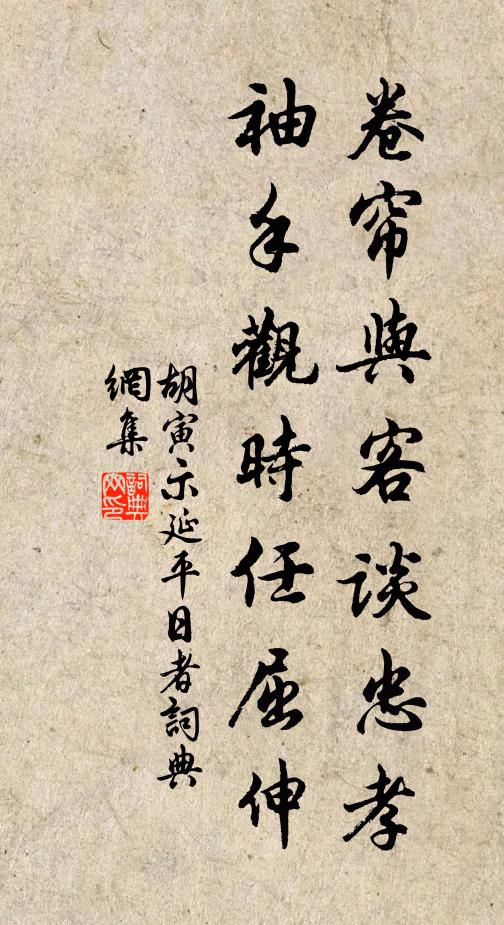 卷帘與客談忠孝
袖手觀時任屈伸
胡寅示延平日者詞典
網集
詞典網印